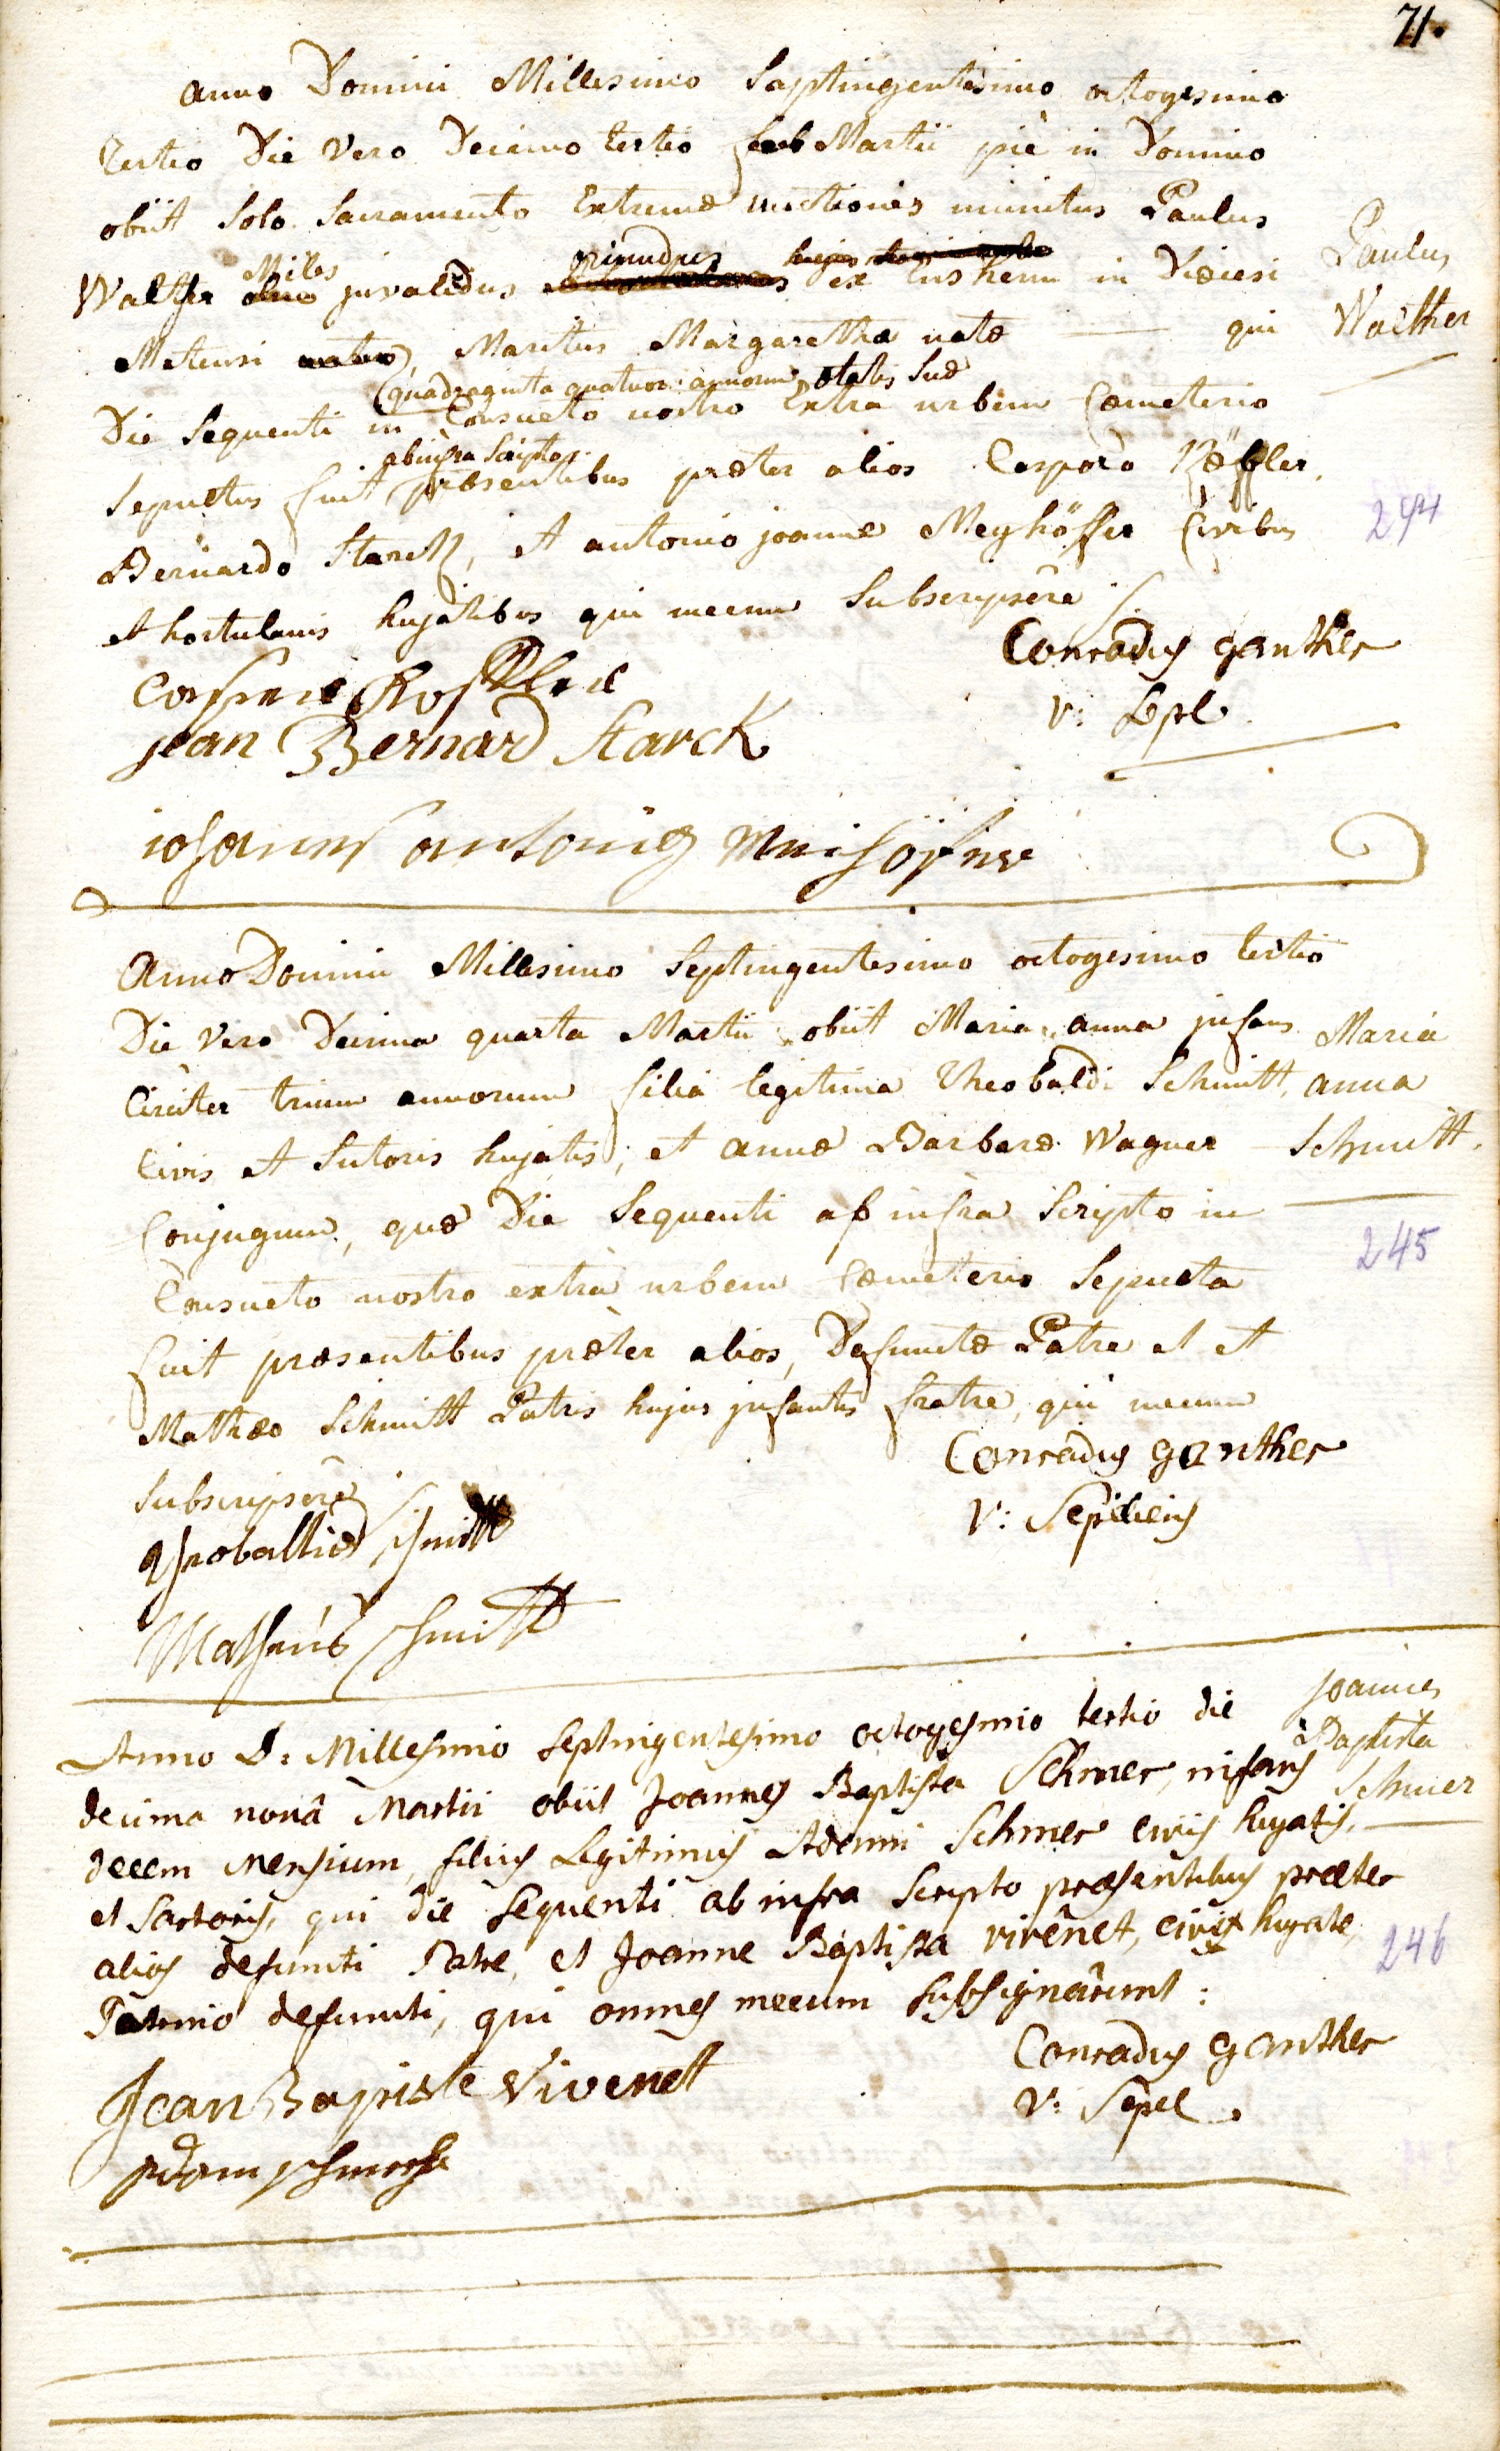 71.
Anno Domini Millesimo Septingentesimo octogesimo
tertio Die Vero Decimo tertio Martii piè in Domino
obiit Solo Sacramento Extremæ unctionis munitus Paulus
Miles oriundus hujus
Walther juvalidus ex Ensheim in Diœcesi
Paulus
Walther
Metensi Maritus Margarethæ natæ — qui
(quadraginta quatuor: annorum ætatis Suæ
Die Sequenti in Consueto nostro Extra urbem Cœmeterio
ab infra Scripto
Sepultus fuit præsentibus præter alios Casparo Röffler,
244
Bernardo Starck, et antonio joanne Meyhöffer Civibus
et hortulanis hujatibus qui mecum Subscripsêre
Conradus ganther
V: Sepl
jean Bernard Starck
iohannes antonius Meihöfner
Anno Domini Millesimo Septingentesimo octogesimo tertio
Die Vero Decima quarta Martii obiit Maria anna jnfans
Maria
anna
Schmitt.
Circiter trium annorum filia legitima Theobaldi Schmitt,
Civis et Sutoris hujatis; et annæ Barbaræ Wagner
Conjugum, quæ Die Sequenti ab infra Scripto in
245
Consueto nostro extra urbem Cœmeterio Sepulta
fuit præsentibus præter alios, Defunctæ Patre et et
Mathæo Schmitt Patris hujus jnfantis fratre, qui mecum
Subscripsêre
Conradus ganther
V: Sepeliens
Schmitt
Matheus Schmitt
Anno D: Millesimo Septingentesimo octogesimo tertio die
Joannes
Baptista
Schmer
decima nonâ Martii obiit Joannes Baptista Schmer, infans
decem mensium, filius Legitimus Adami Schmer civis hujatis,
et Sartoris, qui die sequenti ab infra scripto præsentibus præter
alios defuncti Patre, et Joanne Baptista vivênet, cive hujate,
246
Patrino defuncti, qui omnes mecum subsignârunt:
Conradus ganther
V: Sepel.
Jean Baptiste Vivenet
Adam Schmer